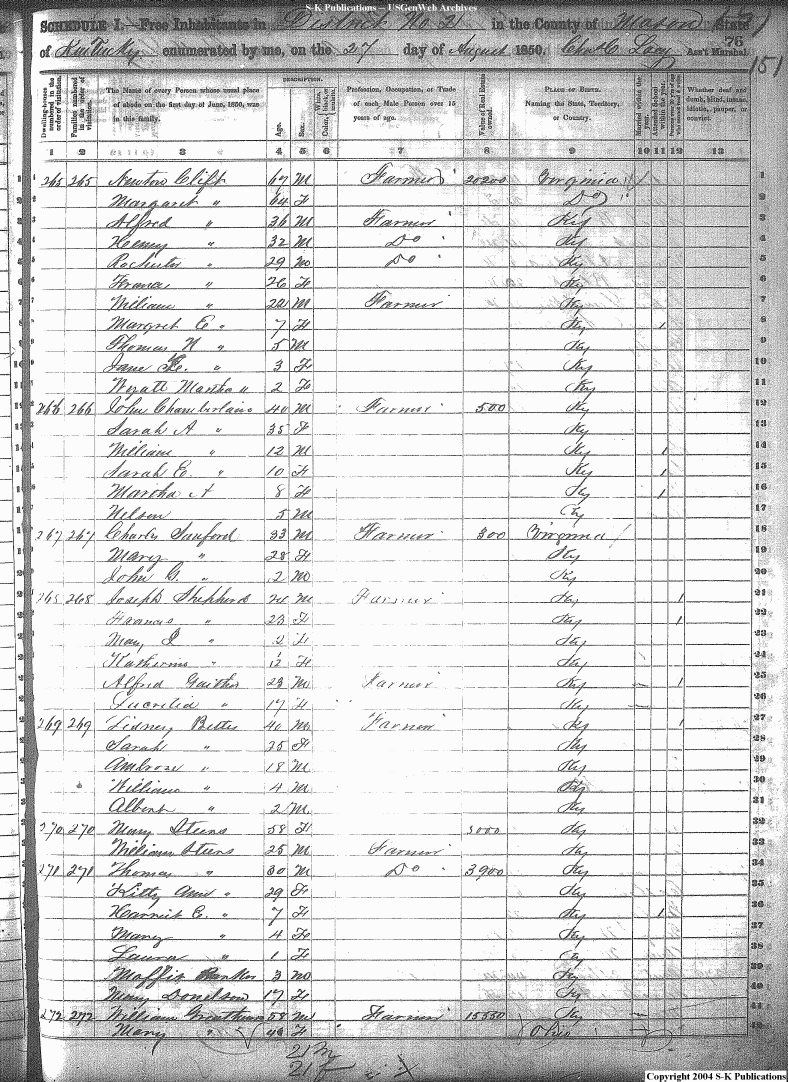 S-K Publications -- USGenWeb Archives
SCHEDULE I.—Free Inhabitants in District No 21 in the County of Mason State
of Kentucky enumerated by me, on the 27 day of August 1850. Chas C Lacy Ass't Marshal.
76
151
Dwelling-houses numbered in the order of visitation.
Families numbered in the order of visitation.
The Name of every Person whose usual place of abode on the first day of June, 1850, was in this family.
DESCRIPTION.
Age.
Sex.
Color, White, black, or mulatto.
Profession, Occupation, or Trade of each Male Person over 15 years of age.
Value of Real Estate owned.
PLACE OF BIRTH. Naming the State, Territory, or Country.
Married within the year.
Attended School within the year.
Whether deaf and dumb, blind, insane, idiotic, pauper, or convict.
1 2 3 4 5 6 7 8 9 10 11 12 13
1 265 265 Newton Clift 67 M Farmer 20200 Virginia 1
2 Margaret " 64 F Do 2
3 Alfred " 36 M Farmer Ky 3
4 Henry " 32 M Do Ky 4
5 Rochester " 29 M Do Ky 5
6 Frances " 26 F Ky 6
7 William " 22 M Farmer Ky 7
8 Margret E " 7 F Ky 1 8
9 Thomas W " 5 M Ky 9
10 Jane " 3 F Ky 10
11 Wyatt Martha " 2 F Ky 11
12 266 266 John Chamberlain 40 M Farmer 500 Ky 12
13 Sarah A " 35 F Ky 13
14 William " 12 M Ky 1 14
15 Sarah E. " 10 F Ky 1 15
16 Martha A 8 F Ky 1 16
17 Nelson 5 M Ky 17
18 267 267 Charles Sanford 33 M Farmer 300 Virginia 18
19 Mary " 28 F Ky 19
20 John G. " 2 M Ky 20
21 268 268 Joseph Shepherd 24 M Farmer Ky 1 21
22 Frances " 23 F Ky 1 22
23 Mary " 2 F Ky 23
24 Katherine " F Ky 24
25 Alfred Gaither 23 M Farmer Ky 1 25
26 Lucretia " 17 F Ky 26
27 269 269 Sidney Bettes 40 M Farmer Ky 1 27
28 Sarah " 25 F Ky 28
29 Ambrose " 18 M Ky 29
30 William " 4 M Ky 30
31 Albert " 2 M Ky 31
32 270 270 Mary Steens 58 F 3000 Ky 32
33 William Steens 25 M Farmer Ky 33
34 271 271 Thomas " 30 M Do 3900 Ky 34
35 Kitty Ann " 29 F Ky 35
36 Harriet E. " 7 F Ky 1 36
37 Mary " 4 F Ky 37
38 Laura " 1 F Ky 38
39 Moffit 3 M Ky 39
40 Mary Donelson 17 F Ky 40
41 272 272 William 58 M Farmer 15550 Ky 41
42 Mary " 48 F Ohio 42
21 M
21 F
Copyright 2004 S-K Publications